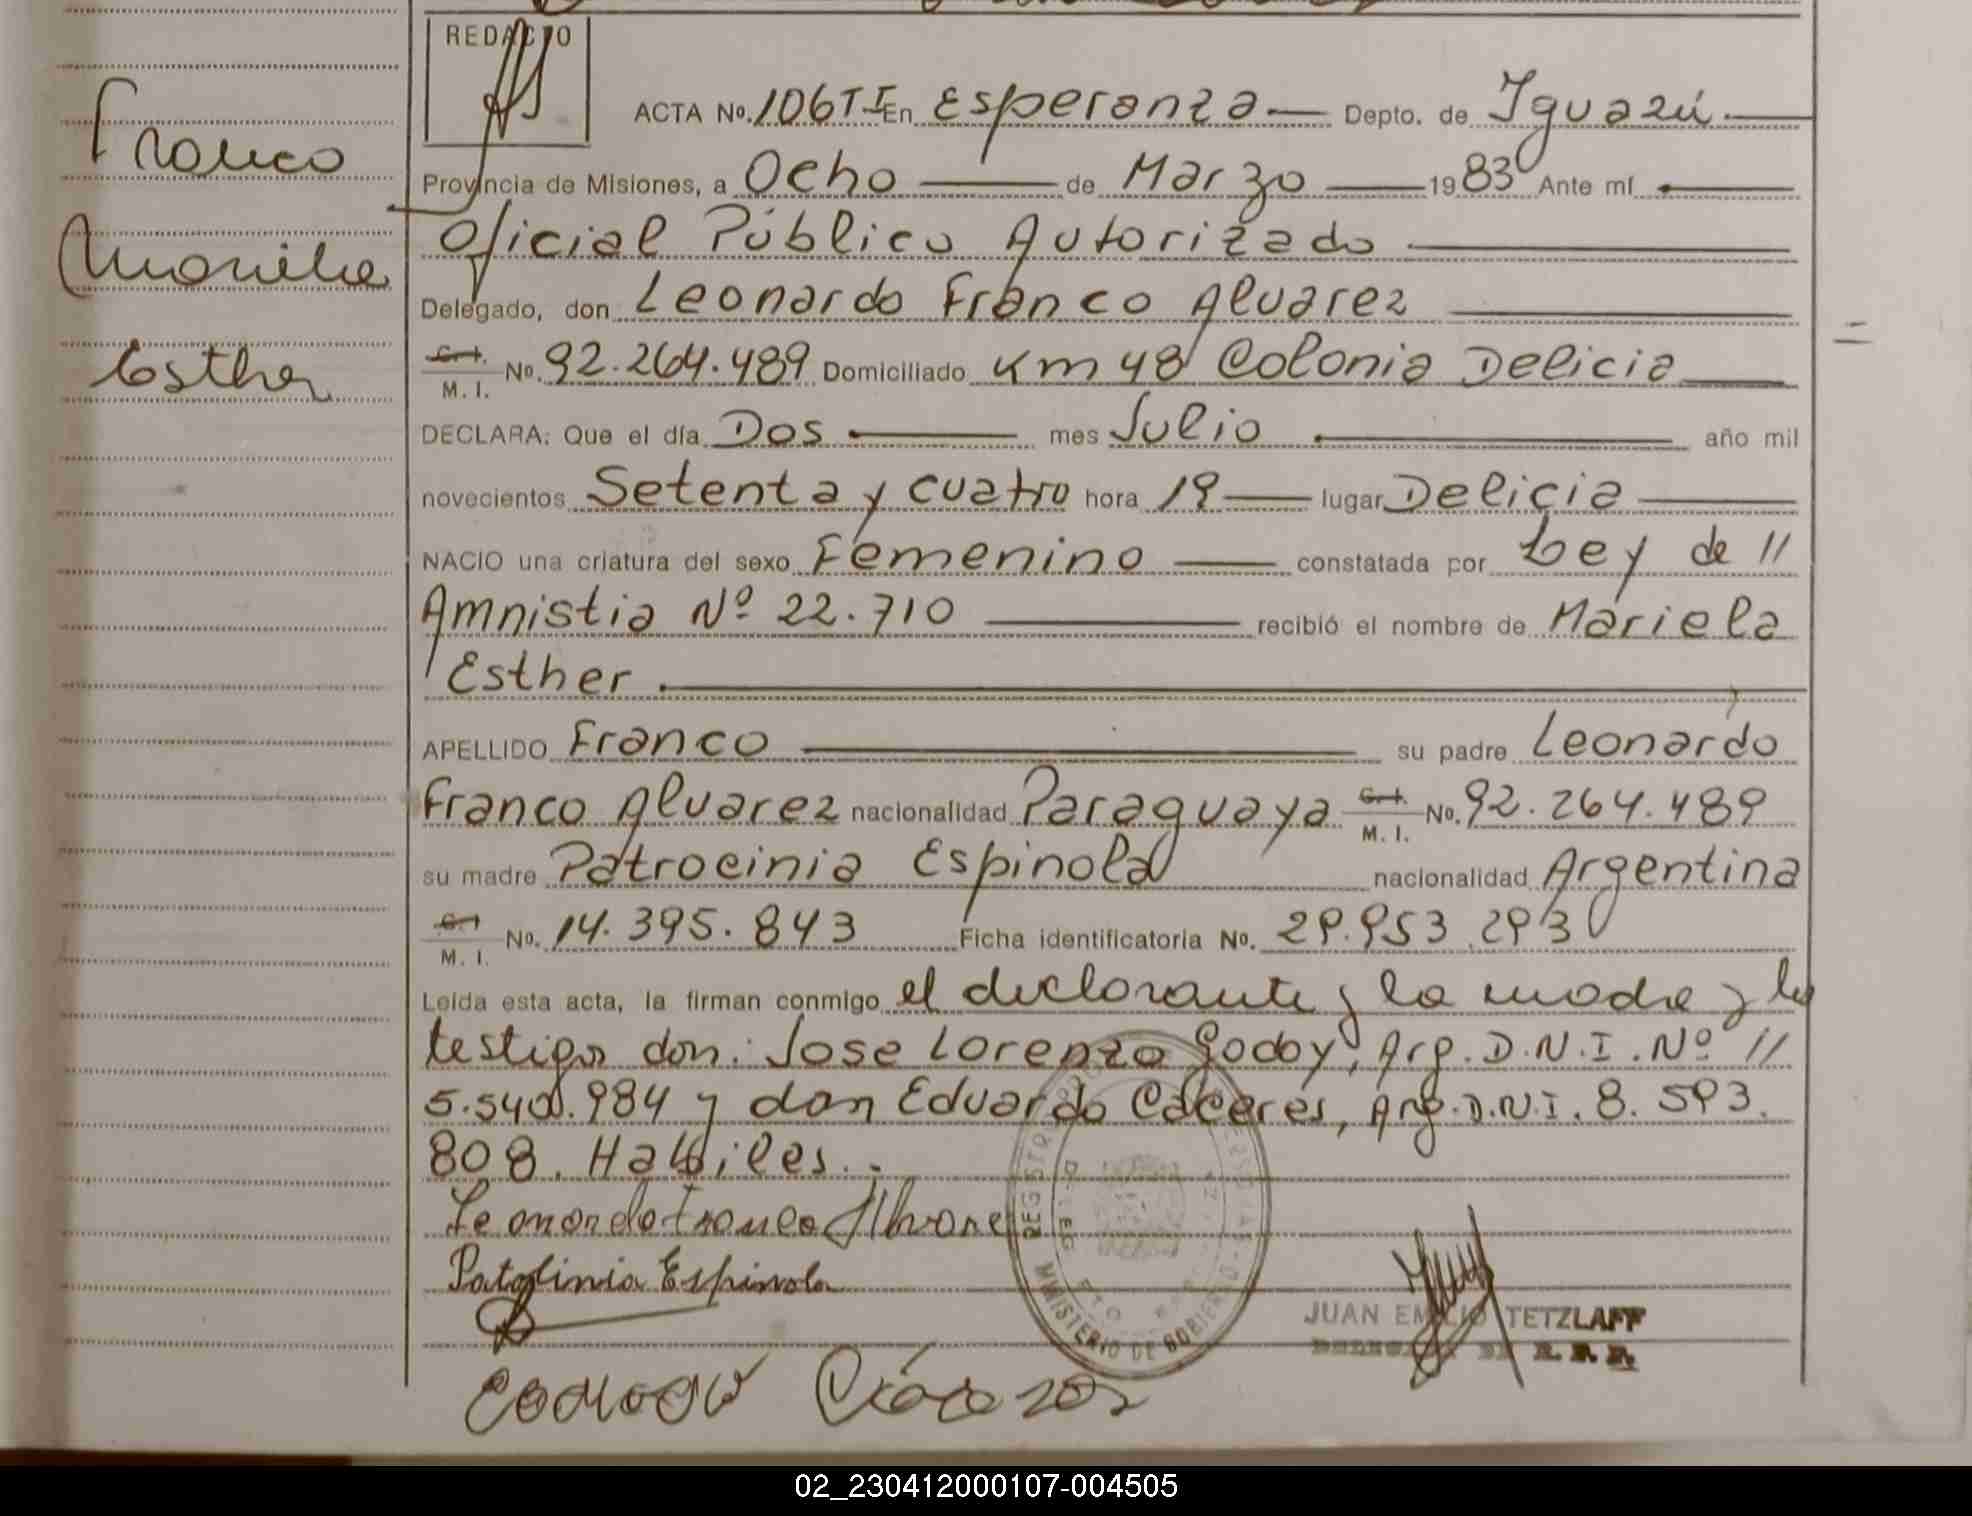 Franco
Mariela
Esther
REDACTO
ACTA No. 106TI En Esperanza Depto. de Iguazú.
Provincia de Misiones, a Ocho de Marzo 1983 Ante mí
Oficial Público Autorizado
Delegado, don Leonardo Franco Alvarez
M. I. No. 92.264.489 Domiciliado Km 48 Colonia Delicia
DECLARA: Que el día Dos mes Julio año mil
novecientos Setenta y cuatro hora 19 lugar Delicia
NACIO una criatura del sexo Femenino constatada por Ley de //
Amnistia Nº 22.710 recibió el nombre de Mariela
Esther.
APELLIDO Franco su padre Leonardo
Franco Alvarez nacionalidad Paraguaya M. I. No. 92.264.489
su madre Patrocinia Espinola nacionalidad Argentina
M. I. No. 14.395.843 Ficha identificatoria No. 29.953.293
Leída esta acta, la firman conmigo el declarante y la madre y los
testigos don: Jose Lorenzo Godoy, Arg. D.N.I. Nº //
5.540.984 y don Eduardo Caceres, Arg. D.N.I. 8.593.
808. Habiles..
Leonardo Franco Alvare
Patosinia Espinola
REGISTRO MINISTERIO DE GOBIERNO
JUAN EMILIO TETZLAFF
02_230412000107-004505